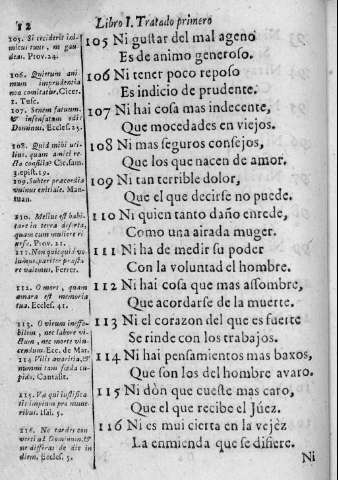 12
Libro I. Tratado primero
105. Si reciderit ini-
micus tuus, ne gau-
deas. Prov. 24.
106. Quierum ani-
mum imprudentia
non comitatur. Cicer.
1. Tusc.
107. Senem fatuum,
& insensatum odit
Dominus. Eccles. 25.
108. Quid mihi uti-
lius, quam amici re-
cta consilia? Cic. fam.
3. epist. 19.
109. Subter præcordia
vulnus
Man-
tuan.
110. Melius est habi-
tare in terra deserta,
quam cum muliere ri-
xosa. Prov. 21.
111. Non quicquid vo-
lumus, pariter præsta-
re valemus. Ferrer.
112. O mors, quam
amara est memoria
tua. Eccles. 41.
113. O virum ineffa-
bilem, nec labore vi-
ctum, nec morte vin-
cendum. Ecc. de Mar.
114. Vilis avaritia, &
nummi tam fœda cu-
pido. Cantalit.
115. Væ qui iustifica-
tis impium pro mune-
ribus. Isai. 5.
116. Ne tardes con-
verti ad Dominum, &
ne differas de die in
diem. Eccles. 5.
105 Ni gustar del mal ageno
Es de animo generoso.
106 Ni tener poco reposo
Es indicio de prudente.
107 Ni hai cosa mas indecente,
Que mocedades en viejos.
108 Ni mas seguros consejos,
Que los que nacen de amor.
109 Ni tan terrible dolor,
Que el que decirse no puede.
110 Ni quien tanto daño enrede,
Como una airada muger.
111 Ni ha de medir su poder
Con la voluntad el hombre.
112 Ni hai cosa que mas assombre,
Que acordarse de la muerte.
113 Ni el corazon del que es fuerte
Se rinde con los trabajos.
114 Ni hai pensamientos mas baxos,
Que son los del hombre avaro.
115 Ni dòn que cueste mas caro,
Que el que recibe el Júez.
116 Ni es mui cierta en la vejèz
La enmienda que se difiere.
Ni